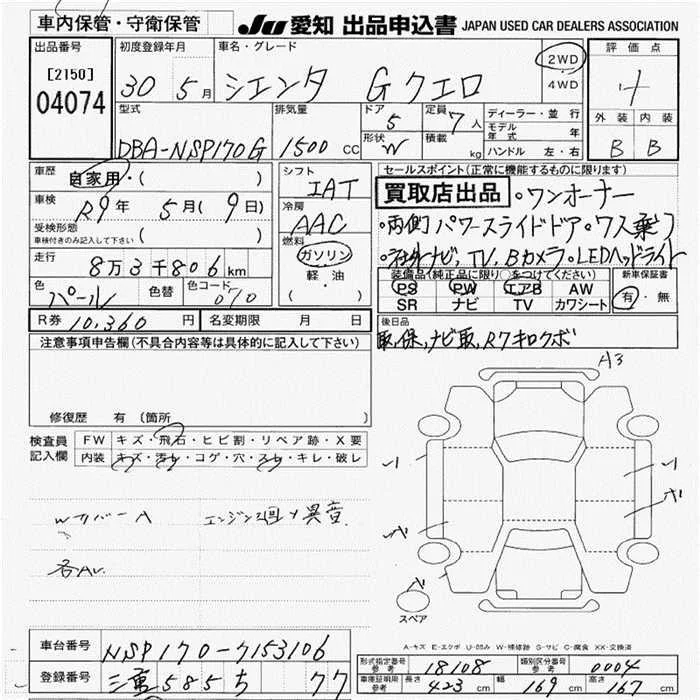 車内保管・守衛保管
JU 愛知 出品申込書 JAPAN USED CAR DEALERS ASSOCIATION
出品番号
[2150]
04074
初度登録年月
30 5月
車名・グレード
シエンタ Gクエロ
2WD
4WD
評価点
4
外装 内装
B B
型式
DBA-NSP170G
排気量
1500 CC
ドア
5
形状
W
定員
7人
積載
kg
ディーラー・並行
モデル年式 年
ハンドル 左・右
車歴
自家用・( )
車検
R9年 5月( 9日)
受検形態
車検付きのみ記入して下さい ( )
走行
8万3千806km
色
パール
色替
色コード
070
シフト
IAT
冷房
AAC
燃料
ガソリン
軽・油
( )
セールスポイント(正常に機能するものに限ります)
買取店出品・ワンオーナー
・両側パワースライドドア・7人乗り
ナビ, TV, Bカメラ・LEDヘッドライト
装備品(純正品に限り○をつけてください)
PS PW エアB AW
SR ナビ TV カワシート
新車保証書
有・無
R券 10,360円
名変期限 月 日
後日品
取,保,ナビ取,R7キロクボ
注意事項申告欄(不具合内容等は具体的に記入して下さい)
修復歴 有(箇所
検査員記入欄
FW キズ・飛石・ヒビ割・リペア跡・X要
内装 キズ・汚れ・コゲ・穴・スレ・キレ・破レ
WカバーA エンジン回り異音
各AU
A3
スペア
A-キズ E-エクボ U-凹み W-補修跡 S-サビ C-腐食 XX-交換済
車台番号
NSP170-7153106
登録番号
三重 585 ち 77
形式指定番号 参考
18108
類別区分番号 参考
0004
車庫証明用 参考
長さ 423 cm 幅 169 cm 高さ 167 cm